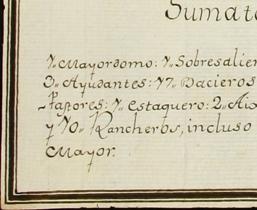 Sumato
1,, Mayordomo: 1,, Sobresalien
3,, Ayudantes: 77,, Bacieros
Pastores: 1,, estaquero: 2,,
y 70,, Rancheros, incluso
Mayor.